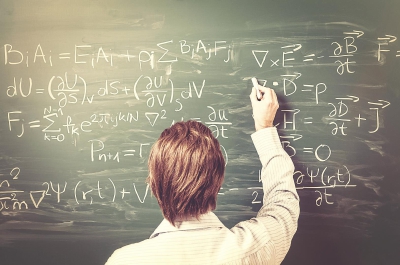 BᵢAᵢ = EᵢAᵢ + ρᵢ ∑ BᵢAⱼFᵢ
∇×E⃗ = −∂B⃗/∂t F⃗ =
dU = (∂U/∂S)ᵥ dS + (∂U/∂V)ₛ dV
∇·D⃗ = ρ
Fⱼ = ∑ₖ₌₀ᴺ⁻¹ fₖ e^(2πijk/N) ∇² = ∂U/∂t
H⃗ = ∂D⃗/∂t + J⃗
Pₙ₊₁ =
B⃗ = 0
∇²Ψ(r,t) + V
∂Ψ(r,t)/∂t